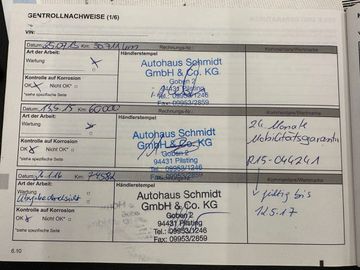 GENTROLLNACHWEISE (1/6)
VIN:
Datum: 25.02.15 Km: 50.711 km Rechnungs-Nr.: Kommentare/Vermerke
Art der Arbeit: Händlerstempel
Wartung x
Autohaus Schmidt
GmbH & Co. KG
Goben 2
94431 Pilsting
Tel.: 09953/1246
Fax: 09953/2859
Kontrolle auf Korrosion
OK x Nicht OK*
*siehe spezifische Seite
Datum: 13.5.15 Km: 60000 Rechnungs-Nr.: Kommentare/Vermerke
Art der Arbeit: Händlerstempel
Wartung x
Autohaus Schmidt
GmbH & Co. KG
Goben 2
94431 Pilsting
Tel.: 09953/1246
Fax: 09953/2859
Kontrolle auf Korrosion
OK x Nicht OK*
*siehe spezifische Seite
24 Monate
Mobilitätsgarantie
R15-044241
Km: 71582 Rechnungs-Nr.: Kommentare/Vermerke
Art der Arbeit: Händlerstempel
Wartung
Autohaus Schmidt
GmbH & Co. KG
Goben 2
94431 Pilsting
Tel.: 09953/1246
Fax: 09953/2859
Kontrolle auf Korrosion
OK x Nicht OK*
*siehe spezifische Seite
gültig bis
12.5.17
6.10